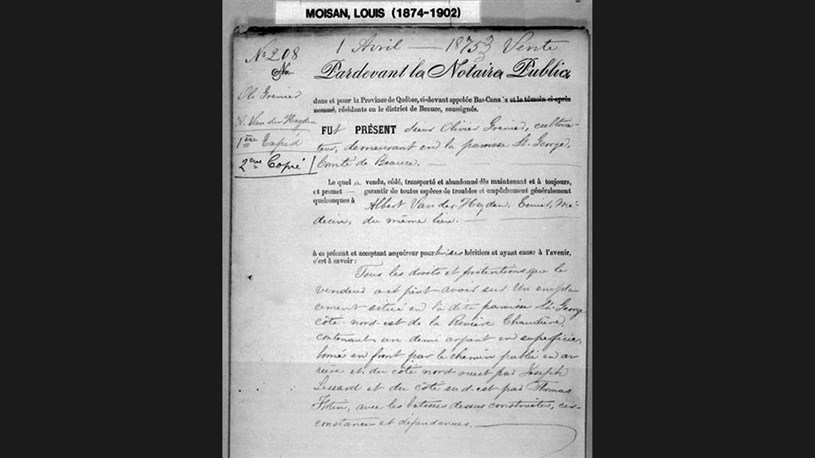 MOISAN, LOUIS (1874-1902)
No 208
1 Avril — 1875 Vente
Pardevant la Notaire Public
No.
Ol. Grenier
A. Van der Heyden
1ère Expéd
2ème Copié
dans et pour la Province de Québec, ci-devant appelée Bas-Canada et le témoin ci-après
nommé, résidents en le district de Beauce, soussignés.
FUT PRÉSENT Sieur Olivier Grenier, cultiva-
teur, demeurant en la paroisse St. George,
Comté de Beauce. —
Le quel a vendu, cédé, transporté et abandonné dès maintenant et à toujours,
et promet — garantir de toutes espèces de troubles et empêchement généralement
quelconques à Albert Van der Heyden, Ecuier, Mé-
decin, du même lieu. —
à ce présent et acceptant acquéreur pour lui ses héritiers et ayant cause à l'avenir,
c'est à savoir :
Tous les droits et prétentions que le
vendeur a et peut avoir sur Un empla-
cement situé en la dite paroisse St. George
côté nord-est de la Rivière Chaudière,
contenant un demi arpent en superficie,
borné en front par le chemin public en ar-
rière et du côté nord ouest par Joseph
Lessard et du côté sud-est par Thomas
avec les batisses dessus construites, cir-
constances et dépendances. —